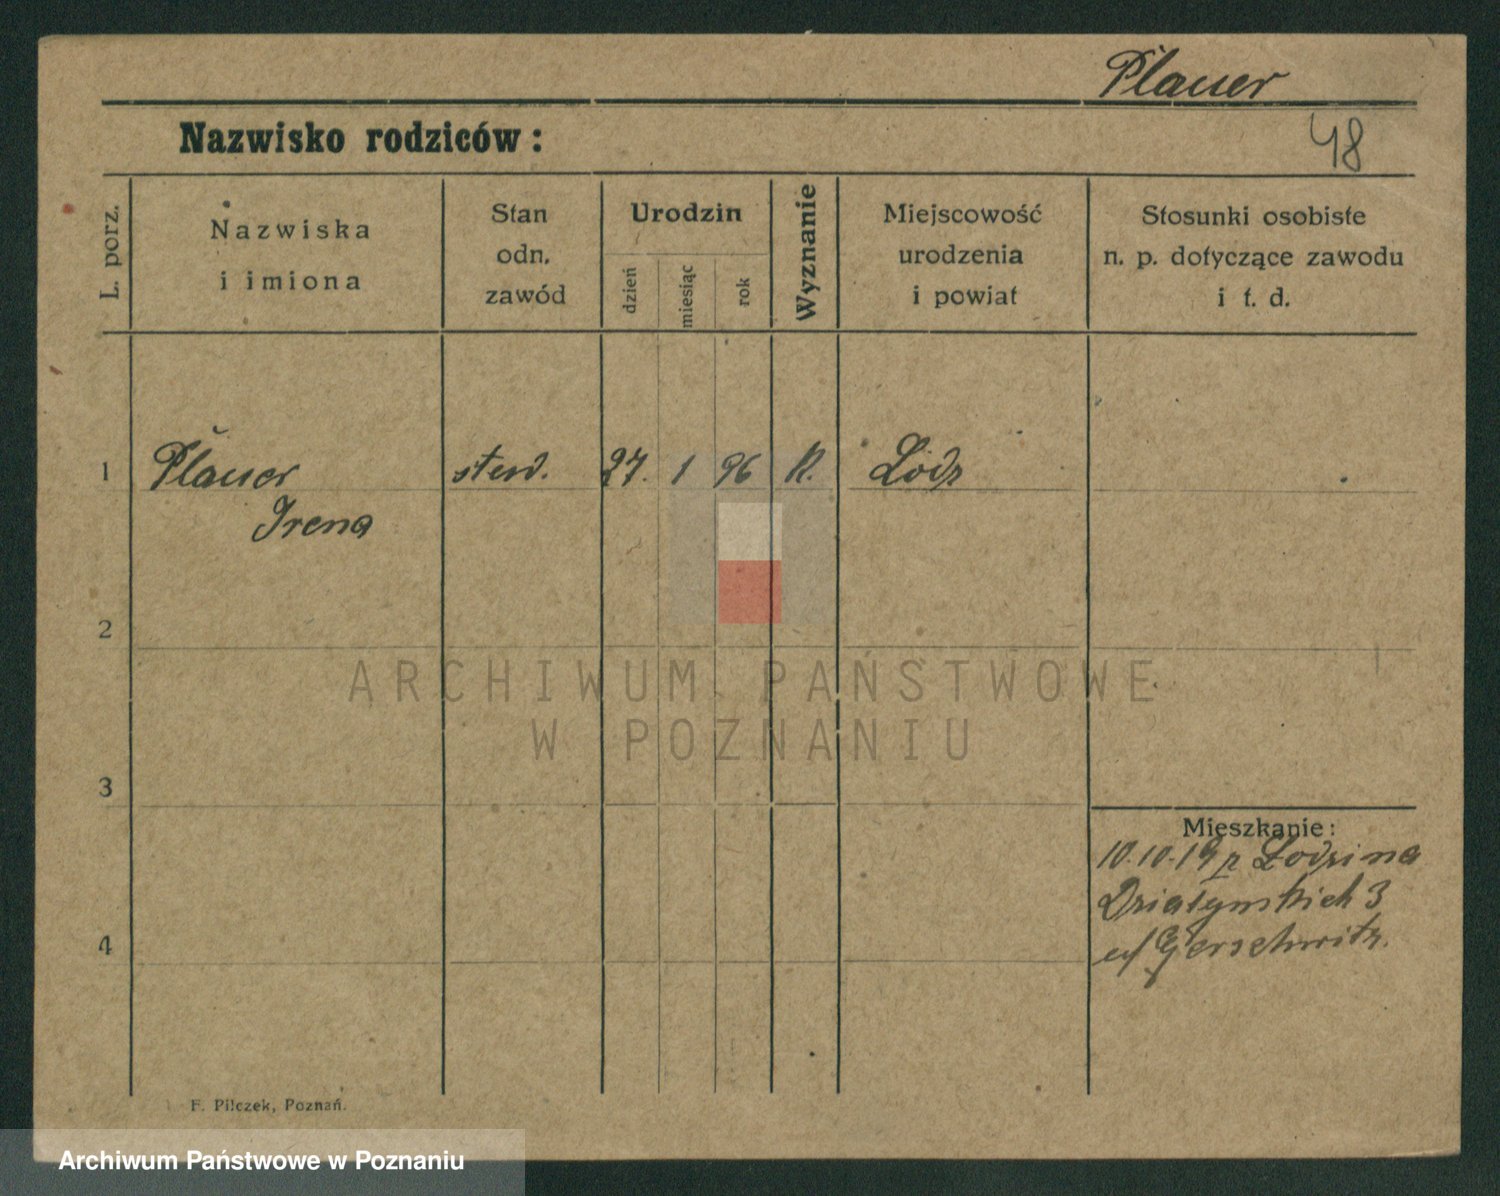 Plauer
Nazwisko rodziców:
48
L. porz.
Nazwiska
i imiona
Stan
odn.
zawód
Urodzin
dzień
miesiąc
rok
Wyznanie
Miejscowość
urodzenia
i powiat
Stosunki osobiste
n. p. dotyczące zawodu
i t. d.
1
Plauer
Irena
27. 1 96
Łódz
2
ARCHIWUM PAŃSTWOWE
W POZNANIU
3
Mieszkanie:
10.10.19
Działyńskich 3
Gerschwitz.
4
F. Pilczek, Poznań.
Archiwum Państwowe w Poznaniu